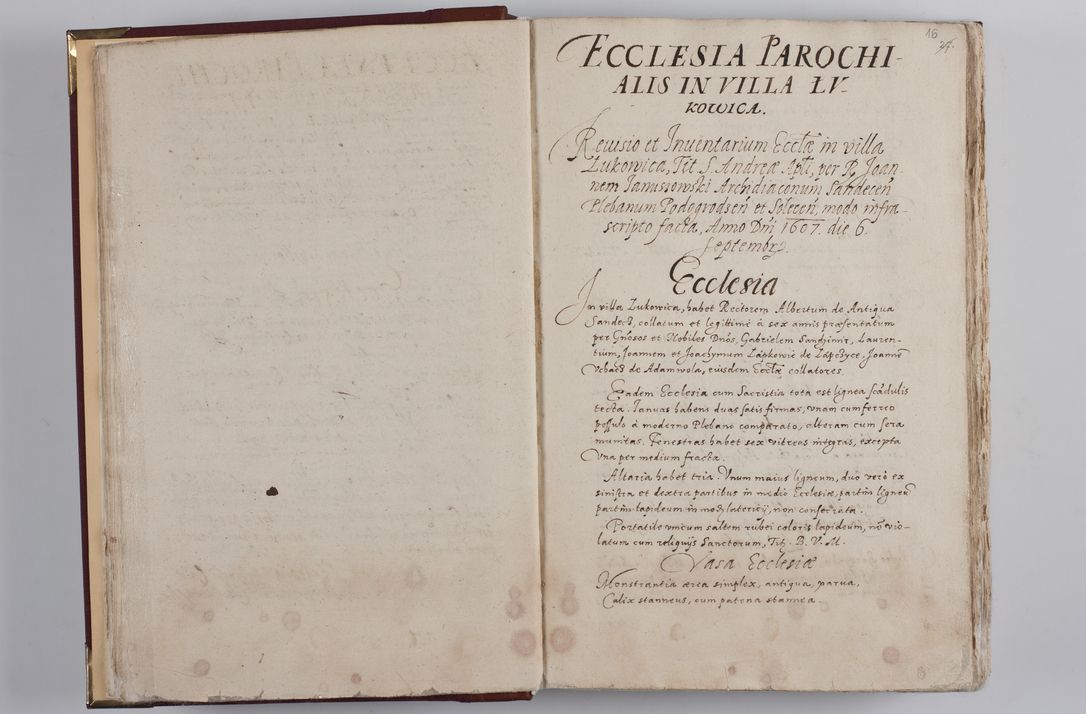 16
24.
ECCLESIA PAROCHI-
ALIS IN VILLA ŁV-
KOWICA.
Reuisio et Inuentarium Eccłæ in villa
Łukowica, Tit. S. Andreæ Apłi, per R. Joan-
nem Januszowski Archidiaconum Sandeceń
Plebanum Podogrodzeń et Soleceń, modo infra-
scripto facta, Anno Dńi 1607. die 6.
Septembr.
Ecclesia
In villa Łukowica, habet Rectorem Albertum de Antiqua
Sandecz, collatum et legittime à sex annis præsentatum
per Gńosos et Nobiles Dnos, Gabrielem Sandzimir, Lauren-
tium, Joannem et Joachymum Łapkowie de Łapczyce, Joanne
de Adamwola, eiusdem Eccłæ collatores.
Eadem Ecclesia cum Sacristia tota est lignea scādulis
tecta. Januas habens duas satis firmas, vnam cum ferreo
pessulo à moderno Plebano comparato, alteram cum sera
munitas. Fenestras habet sex vitreas integras, excepta
Vna per medium fracta.
Altaria habet tria. Vnum maius ligneum, duo verò ex
sinistra et dextra partibus in medio Ecclesiæ, partim ligneū
partim lapideum in mod. latericij, non consecrata.
Portatile vnicum saltem rubei coloris lapideum, nō vio-
latum cum reliquijs Sanctorum, Tit. B. V. M.
Vasa Ecclesiæ
Monstrantia ærea simplex, antiqua, parua,
Calix stanneus, cum patena stannea.